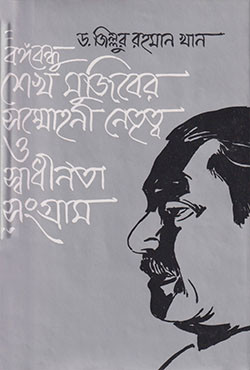 ড. জিল্লুর রহমান খান
বঙ্গবন্ধু
শেখ মুজিবের
সম্মোহনী নেতৃত্ব
ও
স্বাধীনতা
সংগ্রাম